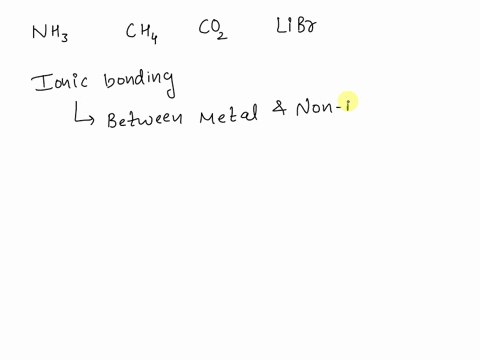 NH3 CH4 CO2 LiBr
Ionic bonding
↳ Between Metal & Non-